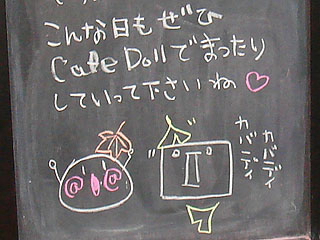 こんな日もぜひ
Cafe Dollでまったり
していって下さいね♡
カバディ
カバディ